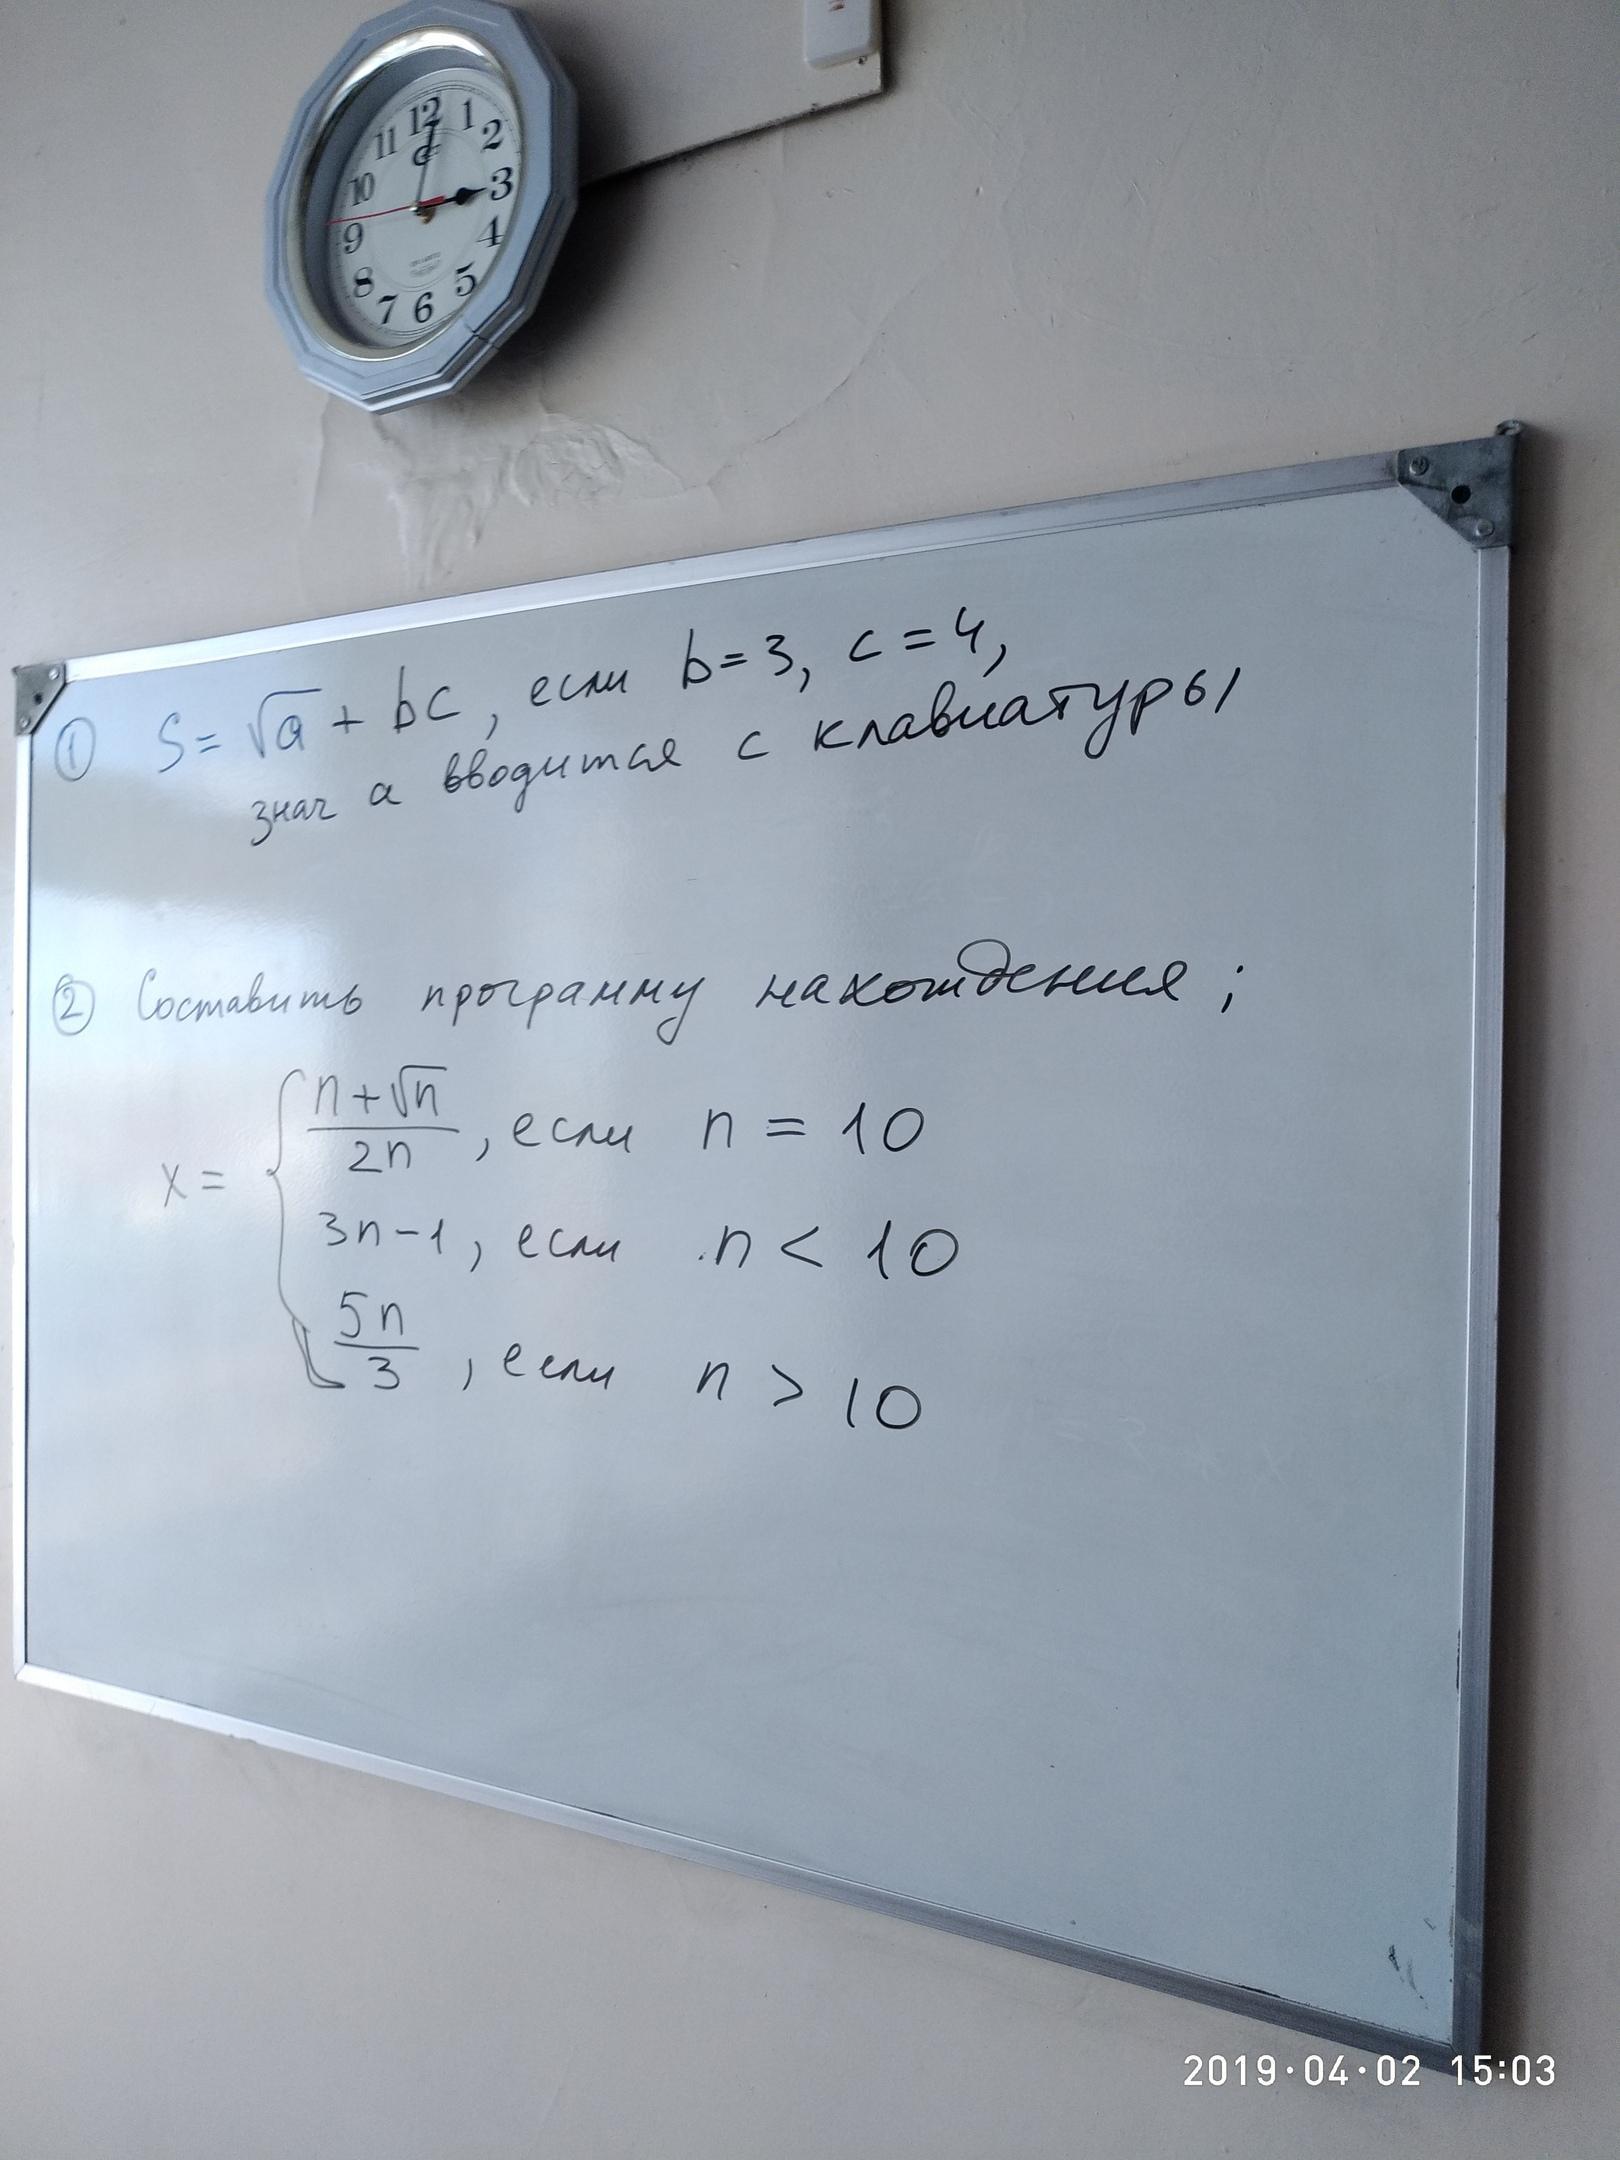 12 1 2 3 4 5 6 7 8 9 10 11
① S = √a + bc, если b = 3, c = 4,
знач a вводится с клавиатуры
② Составить программу нахождения;
x = { (n + √n)/2n, если n = 10
3n - 1, если n < 10
5n/3, если n > 10
2019·04·02 15:03